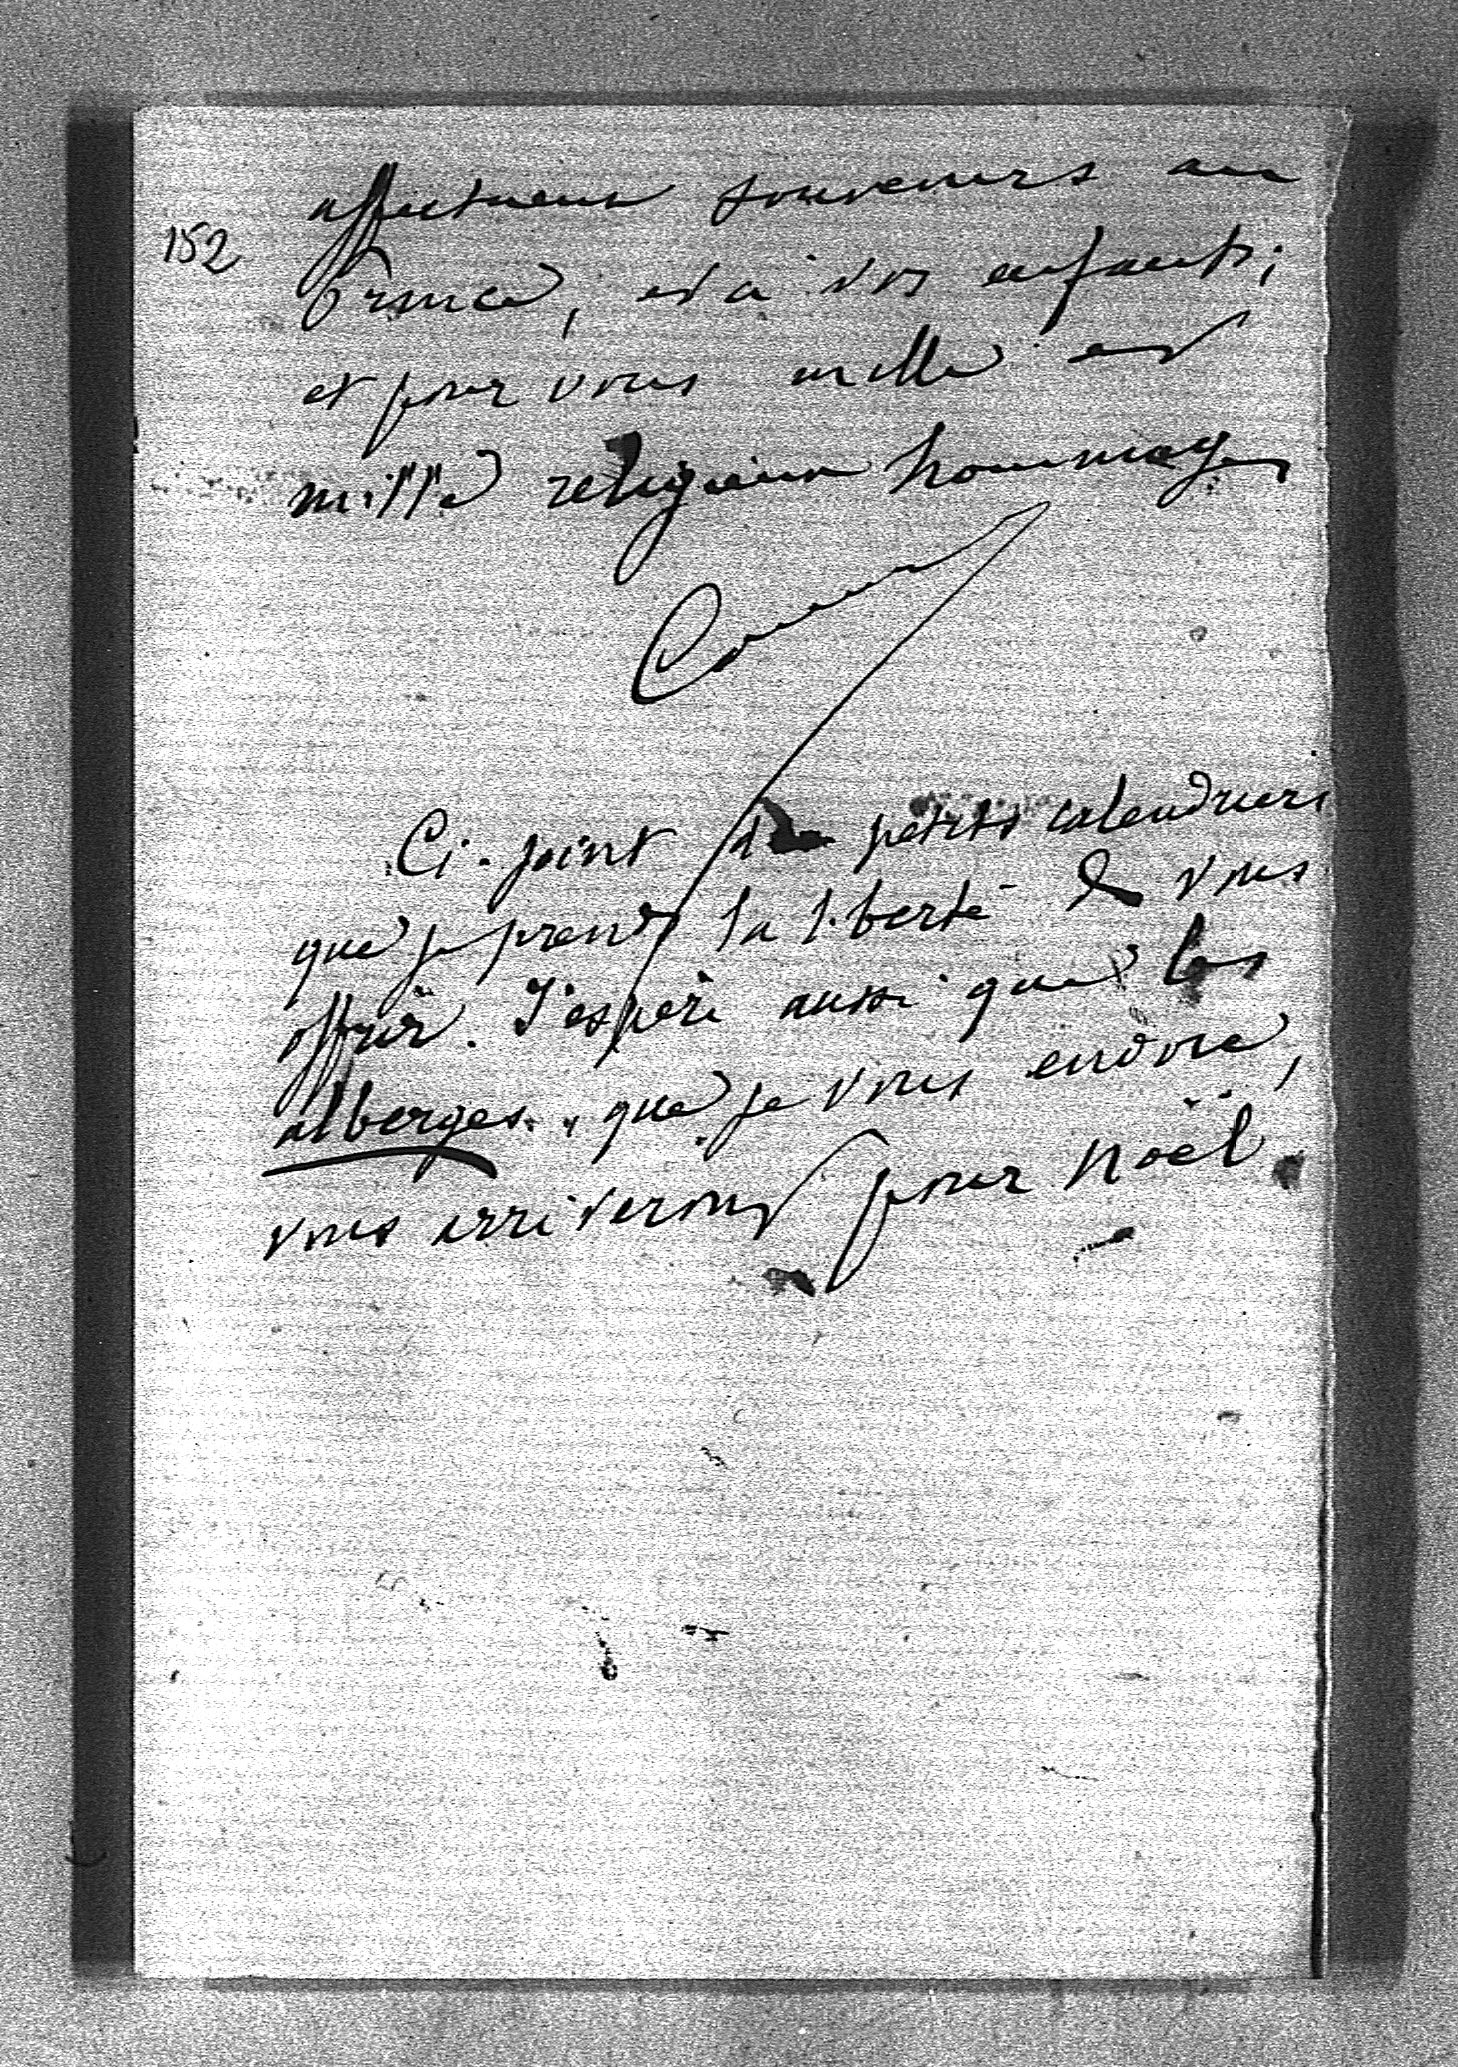 152
affectueux souvenirs au
Prince, et à vos enfants ;
et pour vous mille et
mille religieux hommages
Ci-joint de petits calendriers
que je prends la liberté de vous
offrir. J'espère aussi que les
alberges, que je vous envoie,
vous arriveront pour Noël.